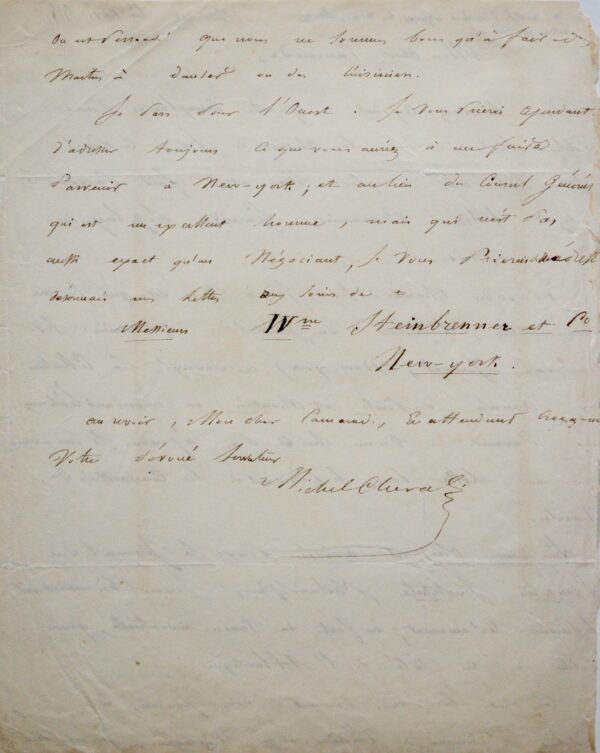 On est persuadé que nous ne sommes bons qu'à faire des
Maitres à danser ou des Cuisiniers.
Je pars pour l'Ouest. Je vous prierai cependant
d'adresser toujours ce que vous auriez à me faire
Parvenir à New-york; et au lieu du Consul Général
qui est un excellent homme, mais qui n'est pas
aussi exact qu'un Négociant, je vous Prierai d'adresser
désormais mes lettres aux soins de
Messieurs Wm Steinbrenner et Co
New-york.
au revoir, Mon cher Camarade, En attendant croyez-moi
Votre dévoué Serviteur
Michel Chevalier